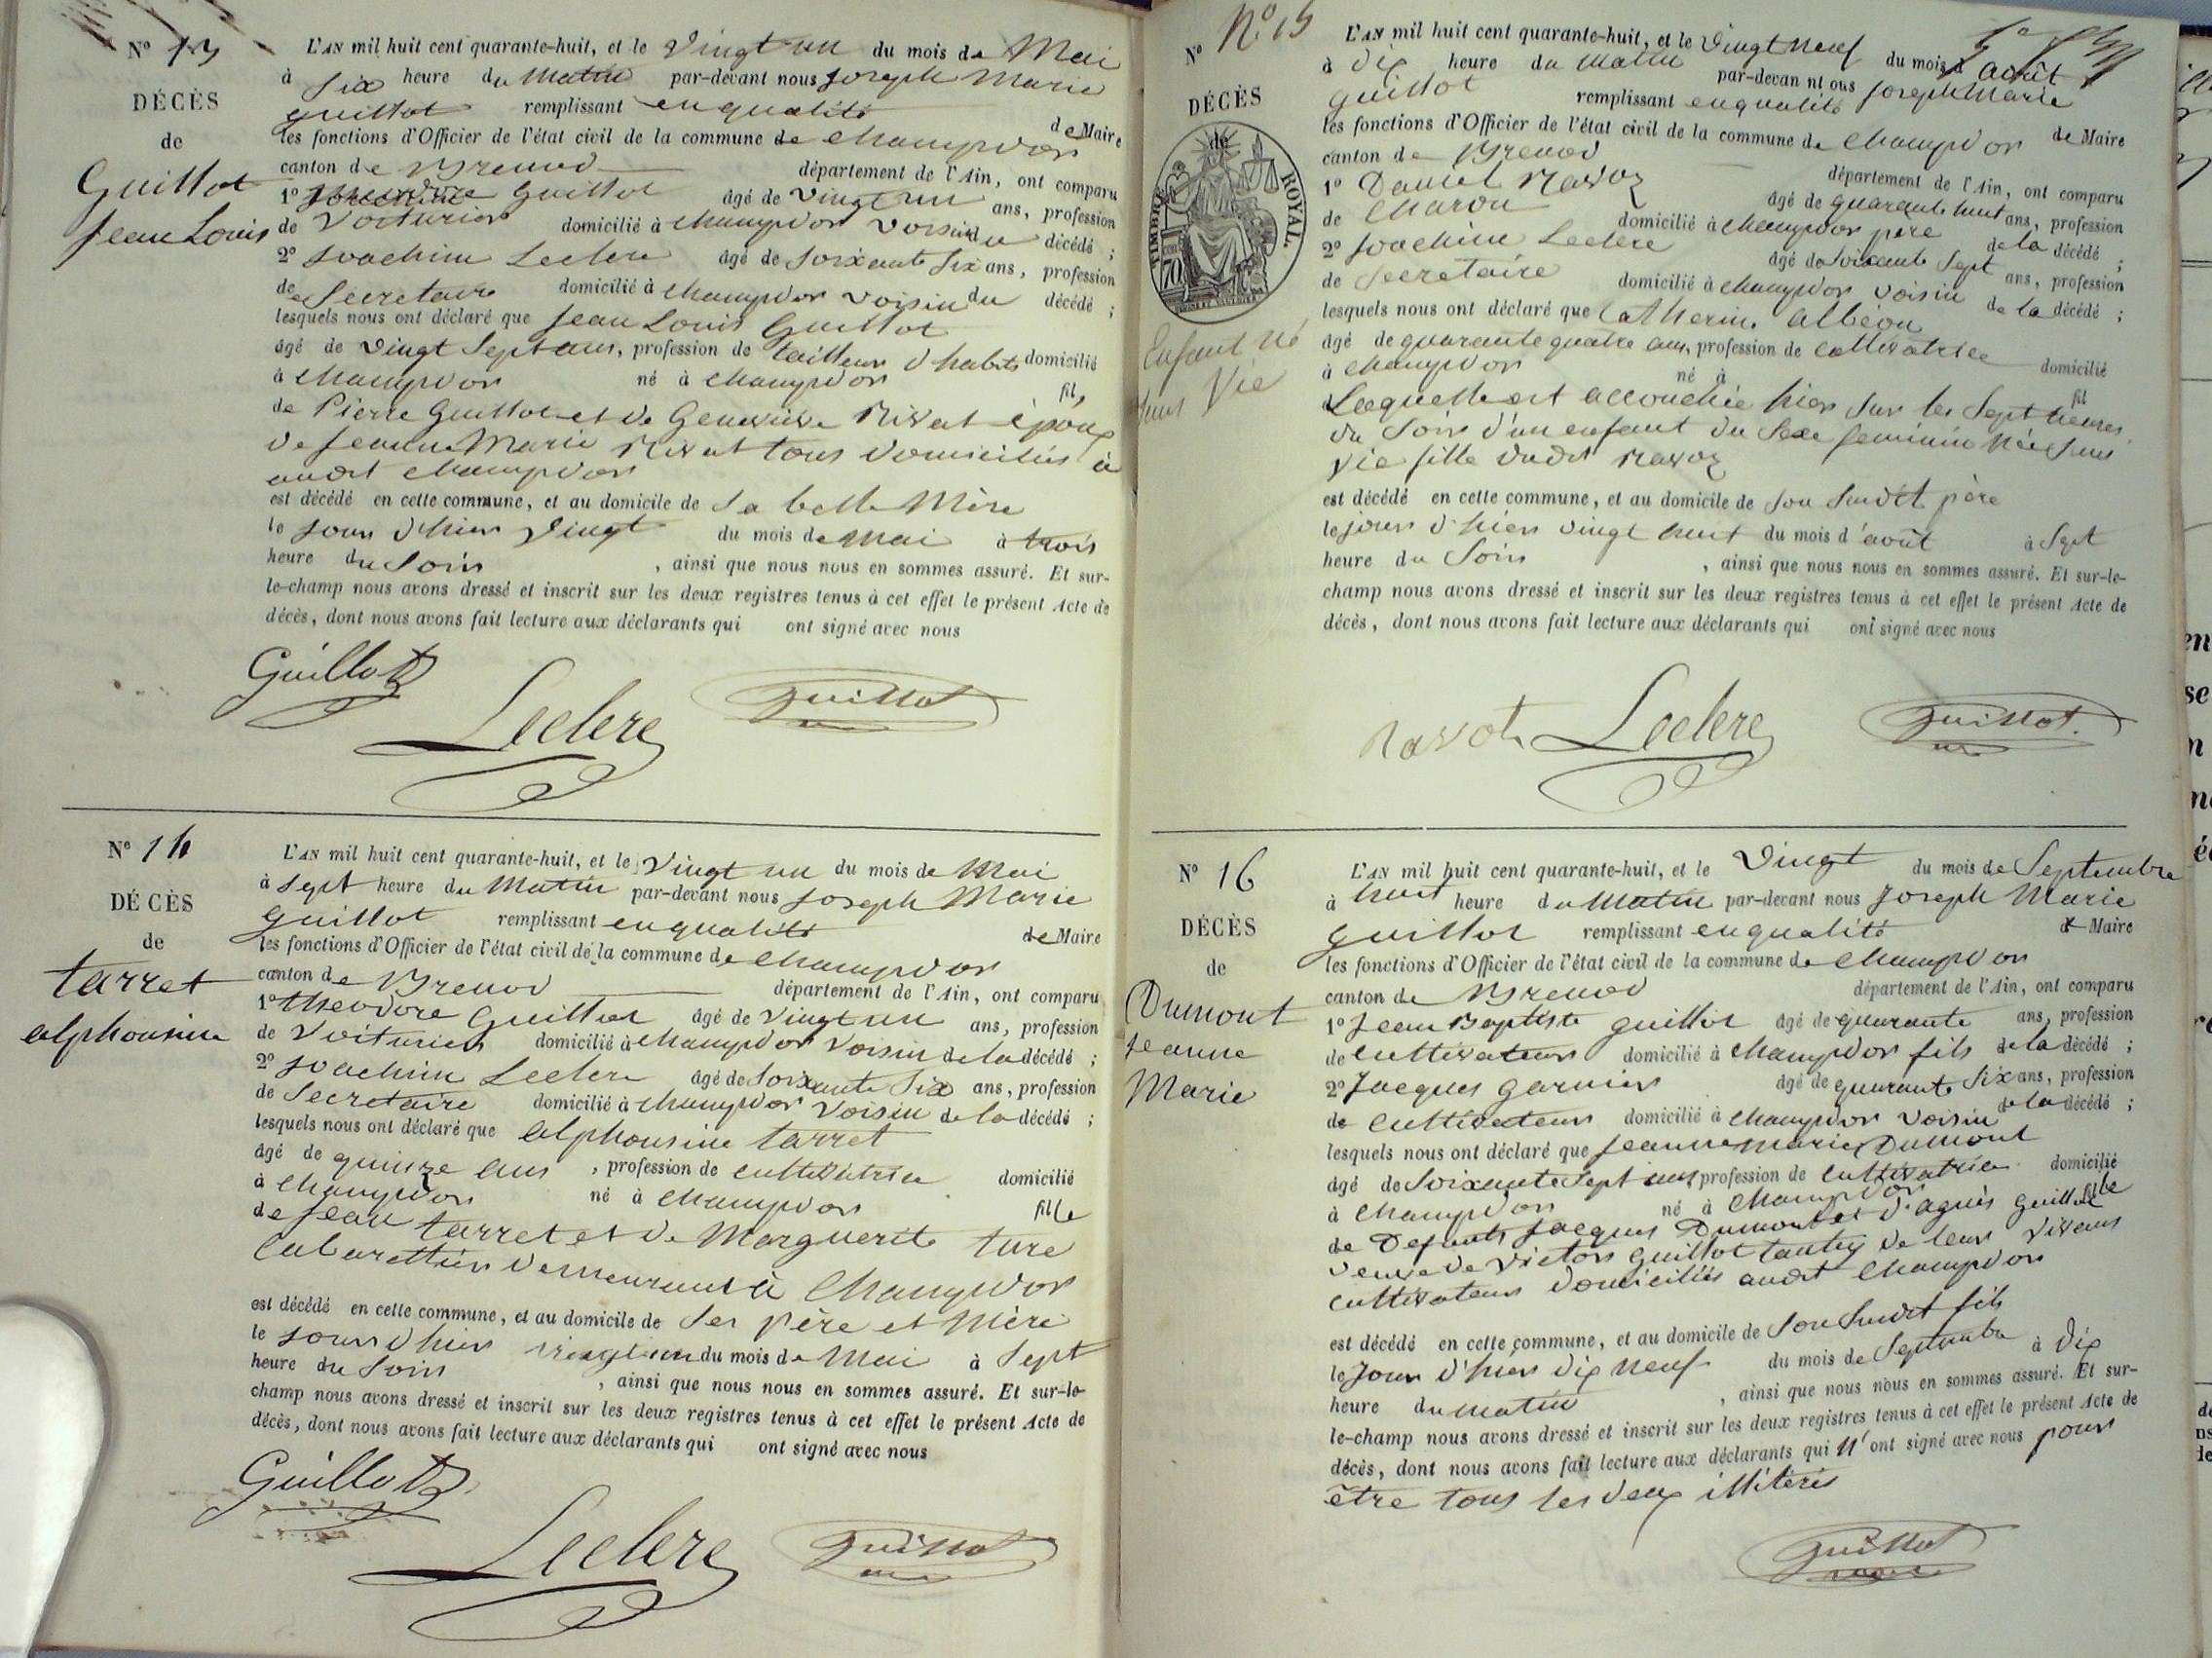 N° 13
DÉCÈS
de
Guillot
Jean Louis
L'AN mil huit cent quarante-huit, et le vingt un du mois de Mai
à Six heure du Matin par-devant nous Joseph Marie
guillot remplissant en qualité de Maire
les fonctions d'Officier de l'état civil de la commune de Champdor
canton de Brenod département de l'Ain, ont comparu
1° guillot âgé de vingt un ans, profession
de Voiturier domicilié à Champdor voisin du décédé ;
2° Joachim Leclerc âgé de Soixante Six ans, profession
de Secretaire domicilié à Champdor voisin du décédé ;
lesquels nous ont déclaré que Jean Louis Guillot
âgé de vingt Sept ans, profession de tailleur d'habits domicilié
à Champdor né à Champdor fils
de Pierre Guillot et de Geneviève Rivat époux
de Jeanne Marie Rivat tous domiciliés à
audit Champdor
est décédé en cette commune, et au domicile de Sa belle Mère
le jour d'hier vingt du mois de Mai à trois
heure du Soir , ainsi que nous nous en sommes assuré. Et sur-
le-champ nous avons dressé et inscrit sur les deux registres tenus à cet effet le présent Acte de
décès, dont nous avons fait lecture aux déclarants qui ont signé avec nous
Guillot
Leclerc
Guillot
N° 14
DÉCÈS
de
tarret
alphonsine
L'AN mil huit cent quarante-huit, et le vingt un du mois de Mai
à Sept heure du Matin par-devant nous Joseph Marie
guillot remplissant en qualité de Maire
les fonctions d'Officier de l'état civil de la commune de Champdor
canton de Brenod département de l'Ain, ont comparu
1° theodore Guillot âgé de vingt un ans, profession
de Voiturier domicilié à Champdor voisin de la décédé ;
2° Joachim Leclerc âgé de Soixante Six ans, profession
de Secretaire domicilié à Champdor voisin de la décédé ;
lesquels nous ont déclaré que alphonsine tarret
âgé de quinze ans , profession de cultivatrice domicilié
à Champdor né à Champdor fille
de Jean tarret et de Marguerite ture
Cabarettier demeurant à Champdor
est décédé en cette commune, et au domicile de Ses père et Mère
le jour d'hier du mois de Mai à Sept
heure du Soir , ainsi que nous nous en sommes assuré. Et sur-le-
champ nous avons dressé et inscrit sur les deux registres tenus à cet effet le présent Acte de
décès, dont nous avons fait lecture aux déclarants qui ont signé avec nous
Guillot
Leclerc
Guillot
N° N° 15
DÉCÈS
de
TIMBRE ROYAL.
70
Enfant né
sans Vie
L'AN mil huit cent quarante-huit, et le Vingt neuf du mois d'août
à dix heure du Matin par-devan nt ous Joseph Marie
guillot remplissant en qualité de Maire
les fonctions d'Officier de l'état civil de la commune de Champdor
canton de Brenod département de l'Ain, ont comparu
1° Daniel Ravoz âgé de quarante huit ans, profession
de Charon domicilié à Champdor père de la décédé ;
2° Joachim Leclerc âgé de Soixante Sept ans, profession
de Secretaire domicilié à Champdor voisin de la décédé ;
lesquels nous ont déclaré que Catherine albeon
âgé de quarante quatre ans, profession de cultivatrice domicilié
à Champdor né à fil
Laquelle est accouchée hier sur les Sept heures
du Soir d'un enfant du Sexe feminin née Sans
Vie fille dudit Ravoz
est décédé en cette commune, et au domicile de Son Sudit père
le jour d'hier vingt huit du mois d'août à Sept
heure du Soir , ainsi que nous nous en sommes assuré. Et sur-le-
champ nous avons dressé et inscrit sur les deux registres tenus à cet effet le présent Acte de
décès, dont nous avons fait lecture aux déclarants qui ont signé avec nous
Leclerc
Guillot
N° 16
DÉCÈS
de
Dumont
Jeanne
Marie
L'AN mil huit cent quarante-huit, et le Vingt du mois de Septembre
à huit heure du Matin par-devant nous Joseph Marie
guillot remplissant en qualité de Maire
les fonctions d'Officier de l'état civil de la commune de Champdor
canton de Brenod département de l'Ain, ont comparu
1° Jean Baptiste guillot âgé de quarante ans, profession
de Cultivateur domicilié à Champdor fils de la décédé ;
2° Jacques garnier âgé de quarante Six ans, profession
de Cultivateur domicilié à Champdor voisin de la décédé ;
lesquels nous ont déclaré que Jeanne Marie Dumont
âgé de Soixante Sept ans profession de Cultivatrice domicilié
à Champdor né à Champdor fille
de Defunts Jacques Dumont et d'agnès guillot
veuve de Victor guillot de leur vivans
cultivateur domiciliés audit Champdor
est décédé en cette commune, et au domicile de Son Sudit fils
le Jour d'hier dix neuf du mois de Septembre à dix
heure du matin , ainsi que nous nous en sommes assuré. Et sur-
le-champ nous avons dressé et inscrit sur les deux registres tenus à cet effet le présent Acte de
décès, dont nous avons fait lecture aux déclarants qui n'ont signé avec nous pour
être tous les deux illitérés
Guillot